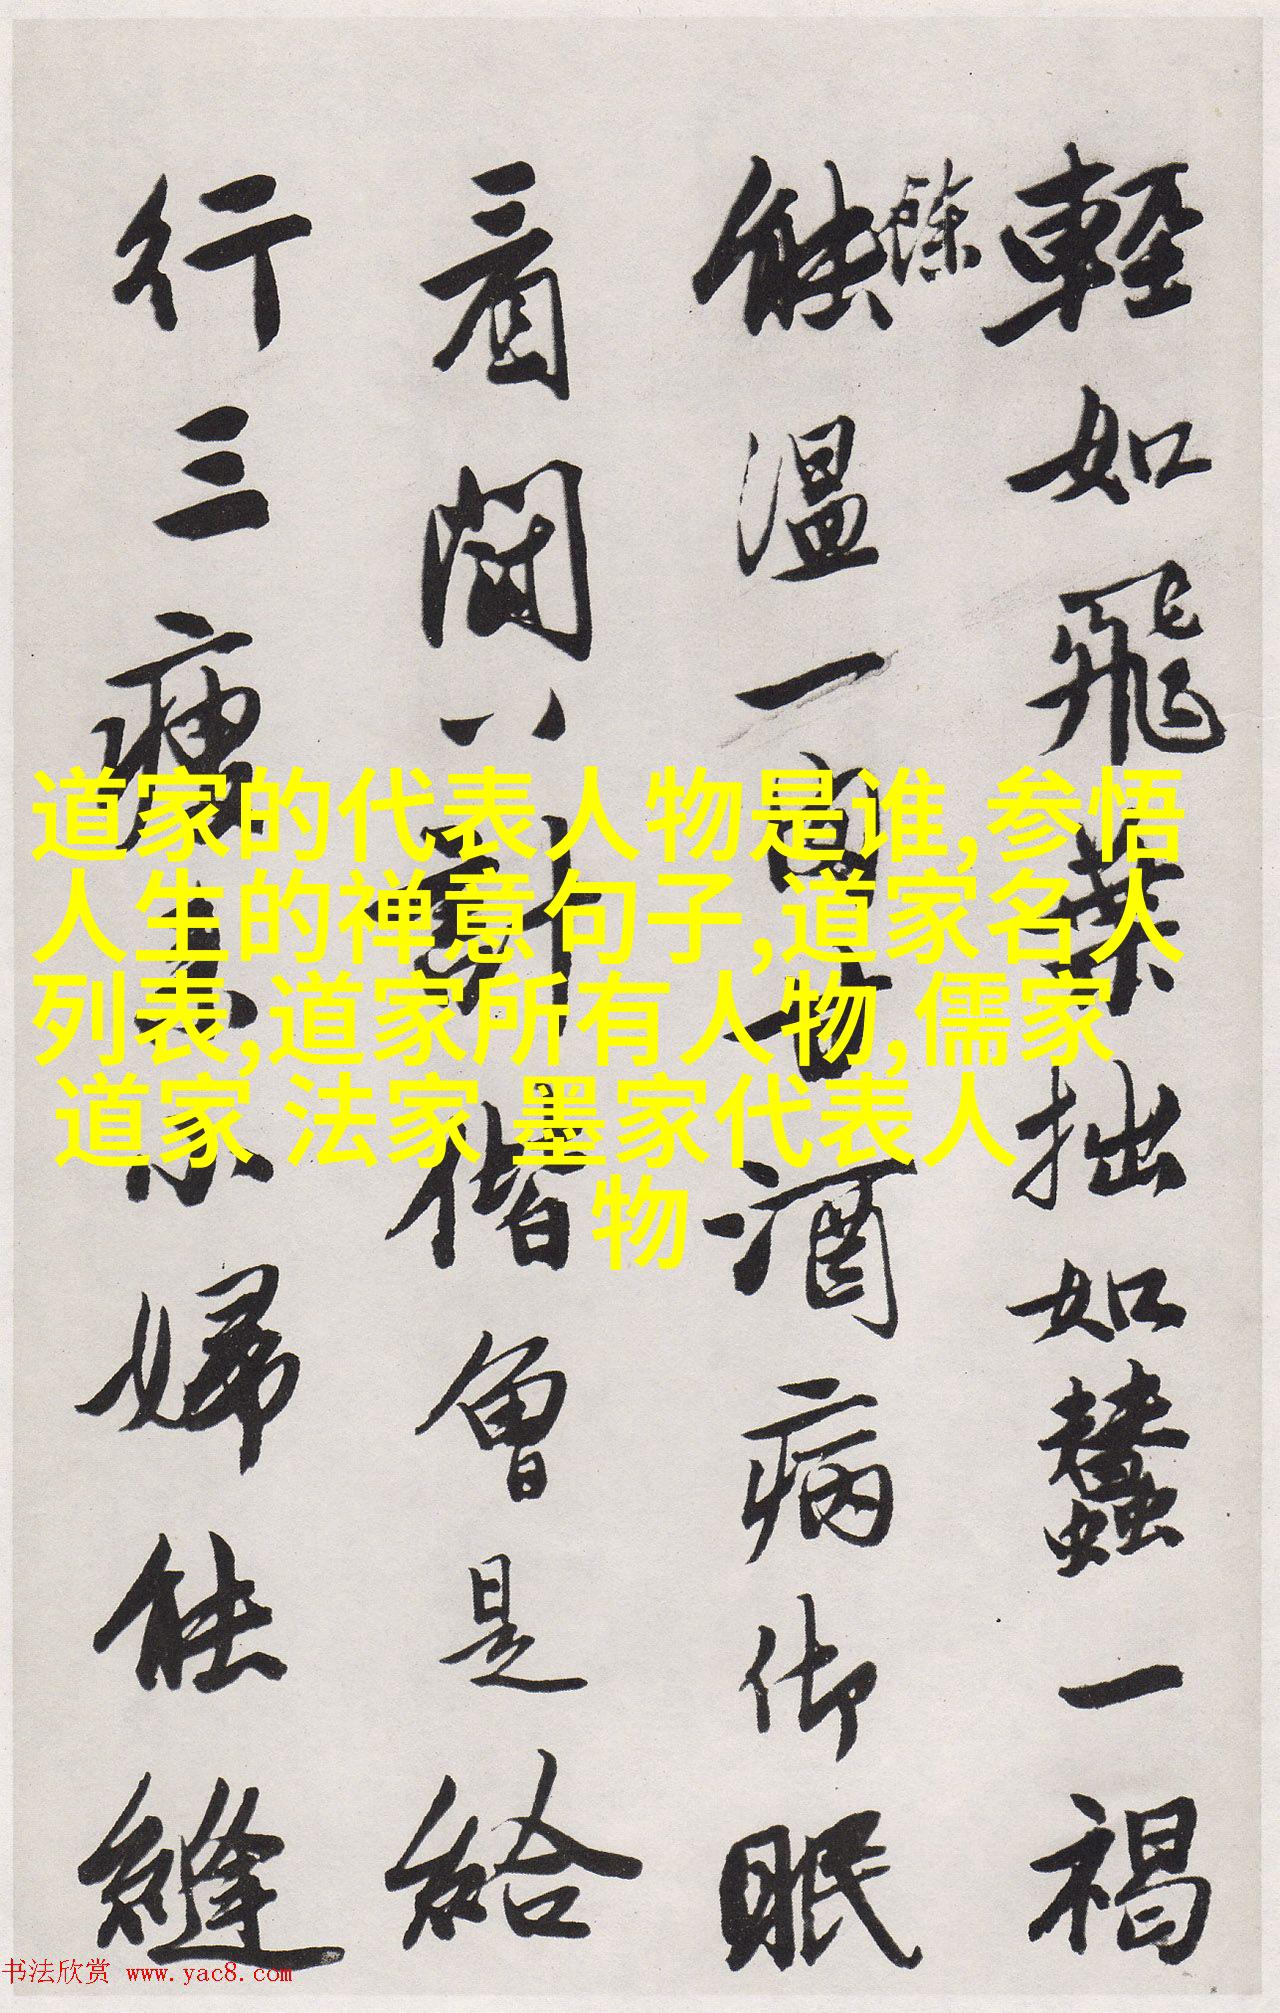 輕如飛葉拙如蠶一褐
餘
能溫一
酒病御眠
看
偕會是給
行三
婦能縫
道家的代表人物是谁,参悟
人生的禅意句子,道家名人
列表,道家所有人物,儒家
道家 法家 墨家代表人
物
书法欣赏 www.yac8.com